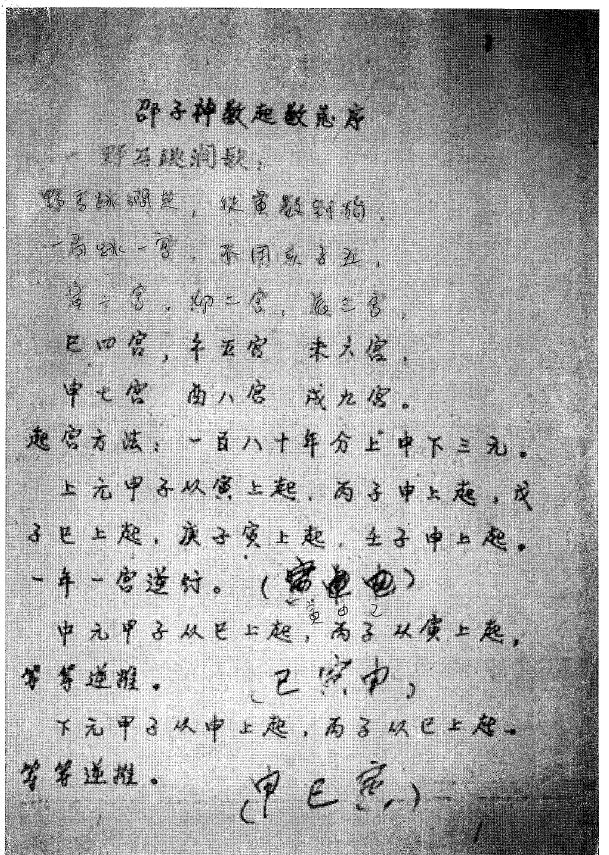 邵子神数起数总序
野马跳涧歌：
野马跳涧走，从寅数到狗，
一年跳一宫，不用亥子丑，
寅一宫，卯二宫，辰三宫，
巳四宫，午五宫 未六宫，
申七宫 酉八宫 戌九宫。
起宫方法：一百八十年分上中下三元。
上元甲子从寅上起，丙子申上起，戊
子巳上起，庚子寅上起，壬子申上起。
一年一宫逆行。（寅申巳）
中元甲子从巳上起，丙子从寅上起，
等等逆推。（巳寅申）
下元甲子从申上起，丙子从巳上起。
等等逆推。（申巳寅）